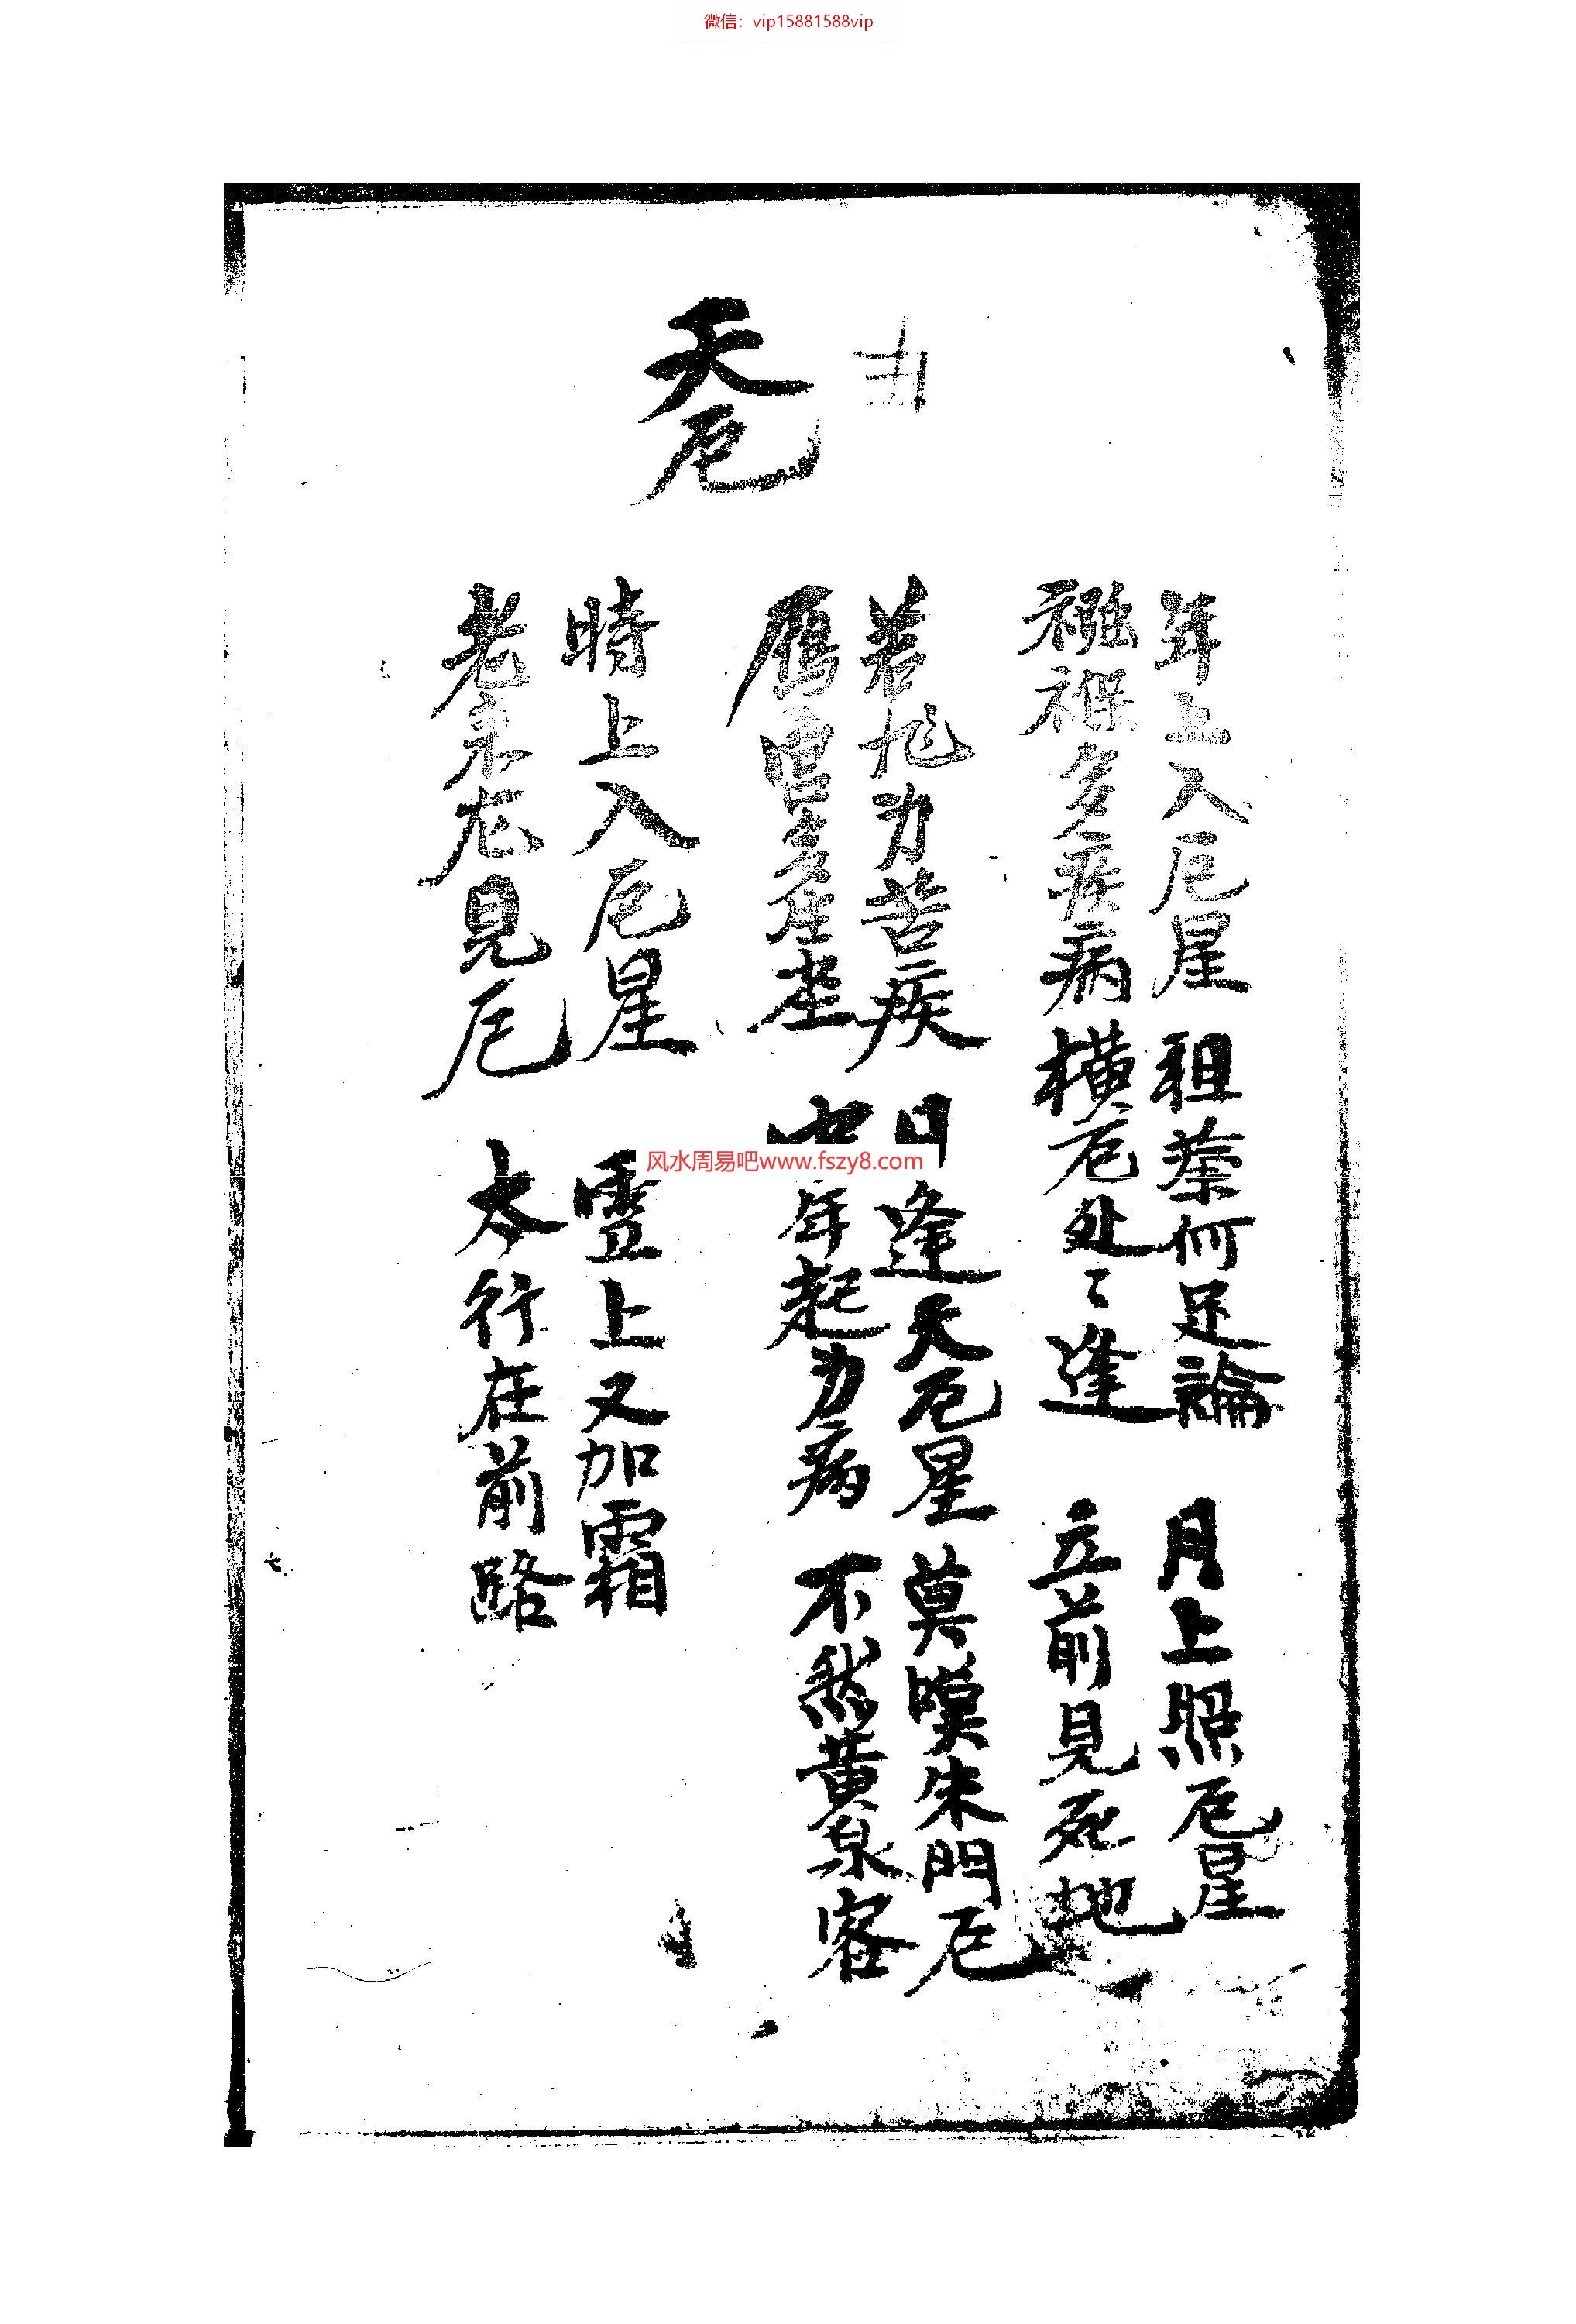 微信：vip15881588vip
丑
天厄
年上入厄星 祖業何足論 月上照厄星
襁褓多疾病 橫厄处々逢 立前見死地
若 为苦疾 日逢天厄星 莫嘆朱門厄
鴈 多 中年起为病 不然黄泉客
時上入厄星 雪上又加霜
老来 見厄 太行在前路
风水周易吧www.fszy8.com